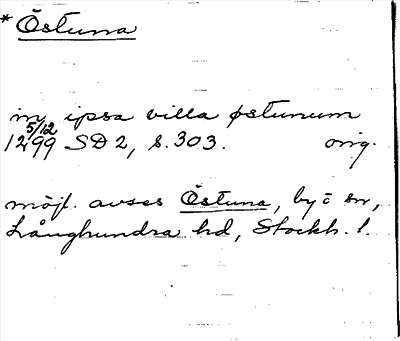 * Östuna
in ipsa villa østunum
5/12
1299 SD 2, s. 303. orig.
möjl. avses Östuna, by i sn,
Långhundra hd, Stockh. l.